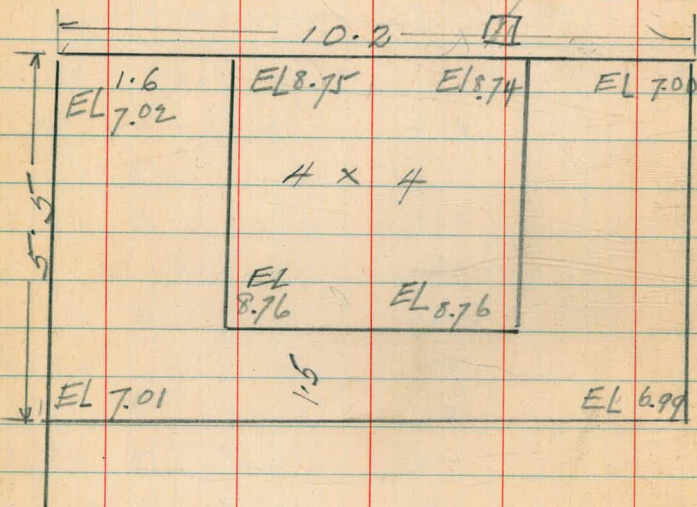 10.2
1.6
EL 7.02
EL 8.75
El 8.74
EL 7.00
5.5
4 x 4
EL 8.76
EL 8.76
1.5
EL 7.01
EL 6.99